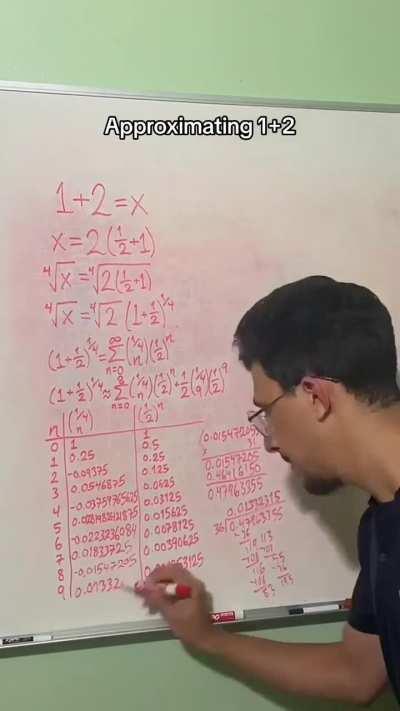 Approximating 1+2
1+2=x
x=2(1/2+1)
⁴√x=⁴√2(1/2+1)
⁴√x=⁴√2(1+1/2)^1/4
(1+1/2)^1/4=∑n=0^∞(1/4 n)(1/2)^n
(1+1/2)^1/4≈∑n=0^8(1/4 n)(1/2)^n+1/2(1/4 9)(1/2)^9
n (1/4 n) (1/2)^n
0 1 1
1 0.25 0.5
2 -0.09375 0.25
3 0.0546875 0.125
4 0.0625
5 0.03125
6 -0.0223236084 0.015625
7 0.01833725 0.0078125
8 -0.01547205 0.00390625
9 0.01332
0.01547205
0.46416150
0.47963355
0.01332315
36 0.47963355